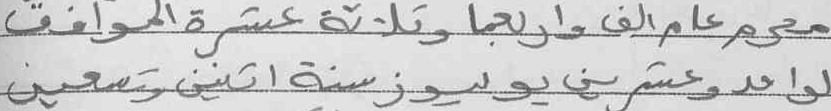 محرم عام الف واربعما وثلاثة عشرة الموافق
لواحد وعشرين يوليوز سنة اثنين وتسعين